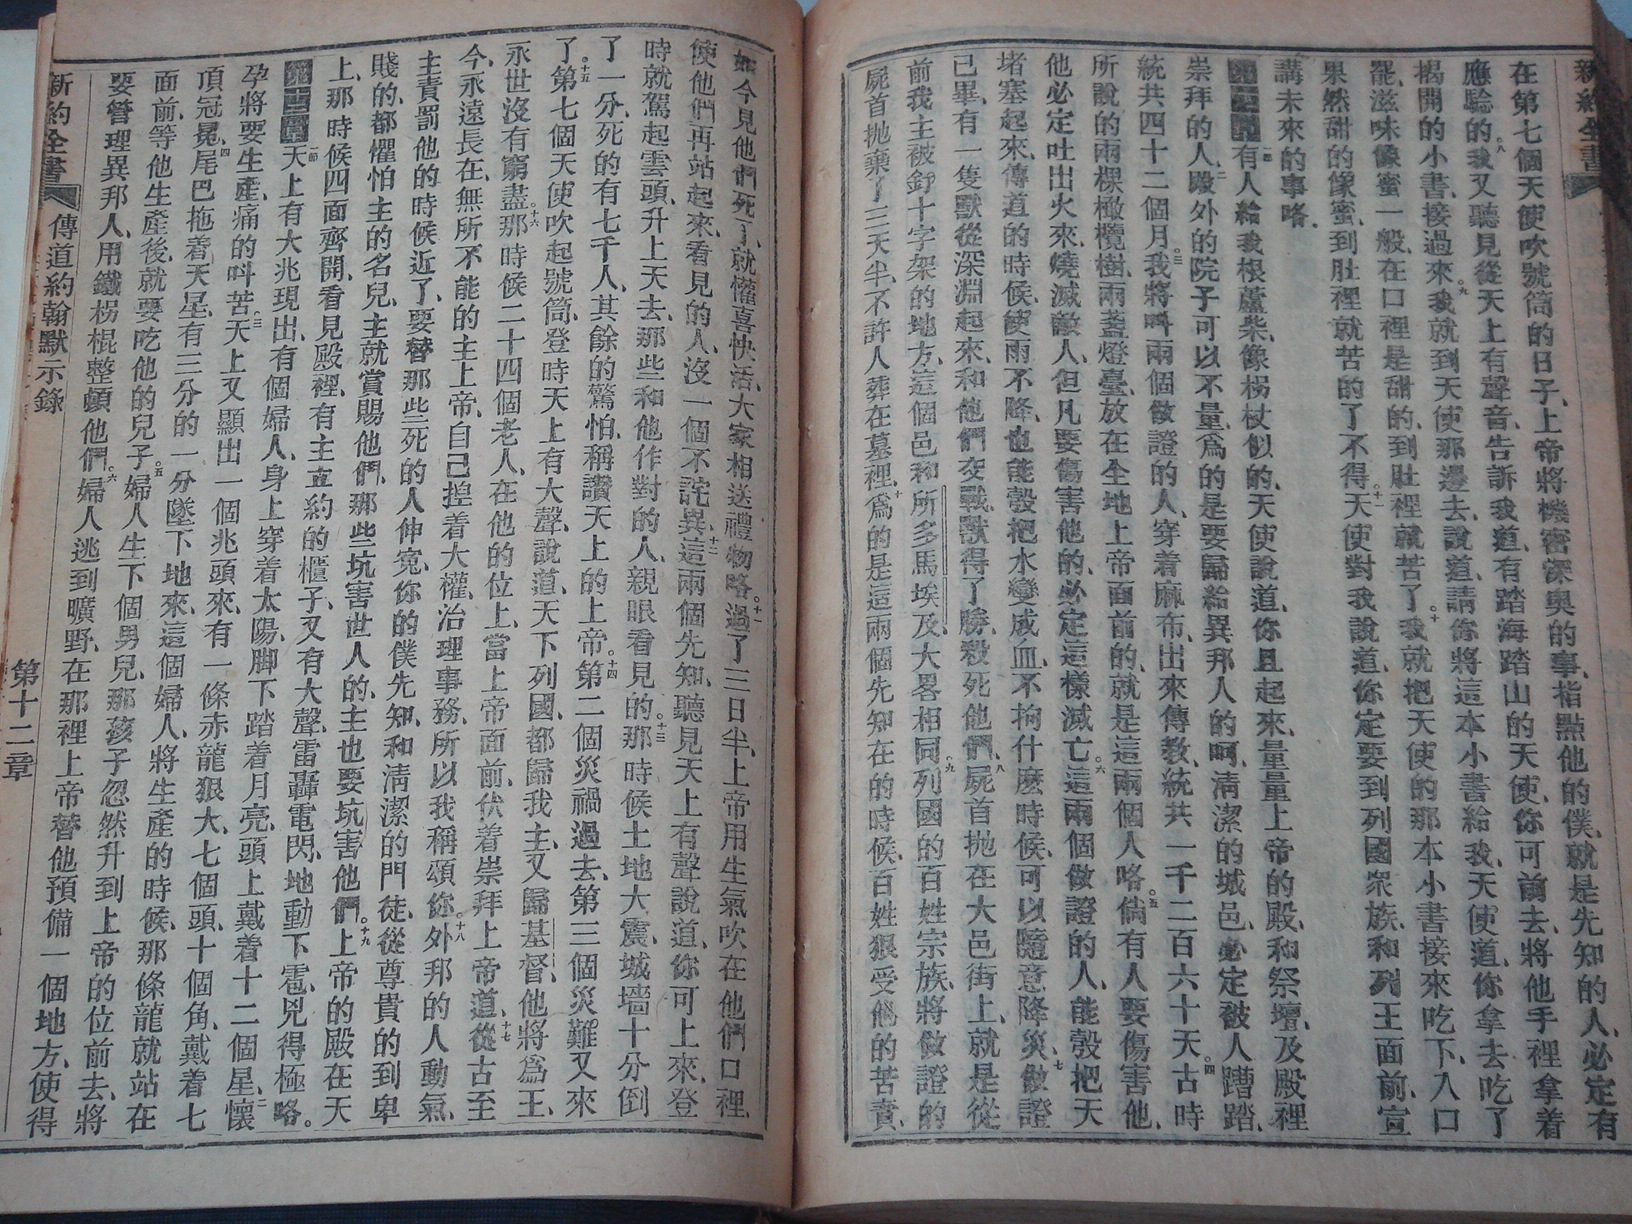 新約全書
在第七個天使吹號筒的日子、上帝將機密深奧的事、指點他的僕、就是先知的人、必定有
應驗的。八我又聽見從天上有聲音、告訴我道、有踏海踏山的天使、你可前去、將他手裡拿着
揭開的小書、接過來。九我就到天使那邊去、說道、請你將這本小書給我、天使道、你拿去吃了
罷、滋味像蜜一般、在口裡是甜的、到肚裡就苦了。十我就把天使的那本小書接來吃下、入口
果然甜的像蜜、到肚裡就苦的了不得。十一天使對我說道、你定要到列國衆族、和列王面前、宣
講未來的事略、
第十一章 一節有人給我根蘆柴、像枴杖似的、天使說道、你且起來、量量上帝的殿、和祭壇、及殿裡
崇拜的人、二殿外的院子可以不量、爲的是要歸給異邦人的、呵、淸潔的城邑、必定被人蹧踏、
統共四十二個月。三我將呌兩個做證的人、穿着麻布、出來傳教、統共一千二百六十天。四古時
所說的兩棵橄欖樹、兩盞燈臺、放在全地上帝面前的、就是這兩個人略。五倘有人要傷害他、
他必定吐出火來、燒滅敵人、但凡要傷害他的、必定這樣滅亡。六這兩個做證的人、能彀把天
堵塞起來、傳道的時候、使雨不降、也能彀把水變成血、不拘什麽時候、可以隨意降災、七做證
已畢、有一隻獸從深淵起來、和他們交戰、獸得了勝、殺死他們、八屍首拋在大邑街上、就是從
前我主被釘十字架的地方、這個邑和所多馬埃及、大畧相同、九列國的百姓宗族、將做證的
屍首拋棄了三天半、不許人葬在墓裡、十爲的是這兩個先知在的時候、百姓狠受他的苦責、
如今見他們死了、就懽喜快活、大家相送禮物略。十一過了三日半、上帝用生氣吹在他們口裡、
使他們再站起來、看見的人、沒一個不詫異、十二這兩個先知、聽見天上有聲說道、你可上來、登
時就駕起雲頭、升上天去、那些和他作對的人、親眼看見的、十三那時候土地大震、城墻十分倒
了一分、死的有七千人、其餘的驚怕、稱讚天上的上帝。十四第二個災禍過去、第三個災難又來
了。十五第七個天使吹起號筒、登時天上有大聲、說道、天下列國、都歸我主、又歸基督、他將爲王、
永世沒有窮盡、十六那時候二十四個老人、在他的位上、當上帝面前、伏着崇拜上帝道、十七從古至
今、永遠長在、無所不能的主上帝、自己揑着大權、治理事務、所以我稱頌你、十八外邦的人動氣、
主責罰他的時候近了、要替那些死的人伸寃、你的僕先知、和淸潔的門徒、從尊貴的到卑
賤的、都懼怕主的名兒、主就賞賜他們、那些坑害世人的、主也要坑害他們。十九上帝的殿在天
上、那時候四面齊開、看見殿裡、有主立約的櫃子、又有大聲、雷轟電閃、地動下雹、兇得極略。
第十二章 一節天上有大兆現出、有個婦人、身上穿着太陽、脚下踏着月亮、頭上戴着十二個星、二懷
孕將要生產、痛的呌苦。三天上又顯出一個兆頭來、有一條赤龍狠大、七個頭、十個角、戴着七
頂冠冕、四尾巴拖着天星、有三分的一分墜下地來、這個婦人、將生產的時候、那條龍就站在
面前、等他生產後、就要吃他的兒子。五婦人生下個男兒、那孩子忽然升到上帝的位前去、將
要管理異邦人、用鐵枴棍整頓他們。六婦人逃到曠野、在那裡上帝替他預備一個地方、使得
新約全書 傳道約翰默示錄
第十二章